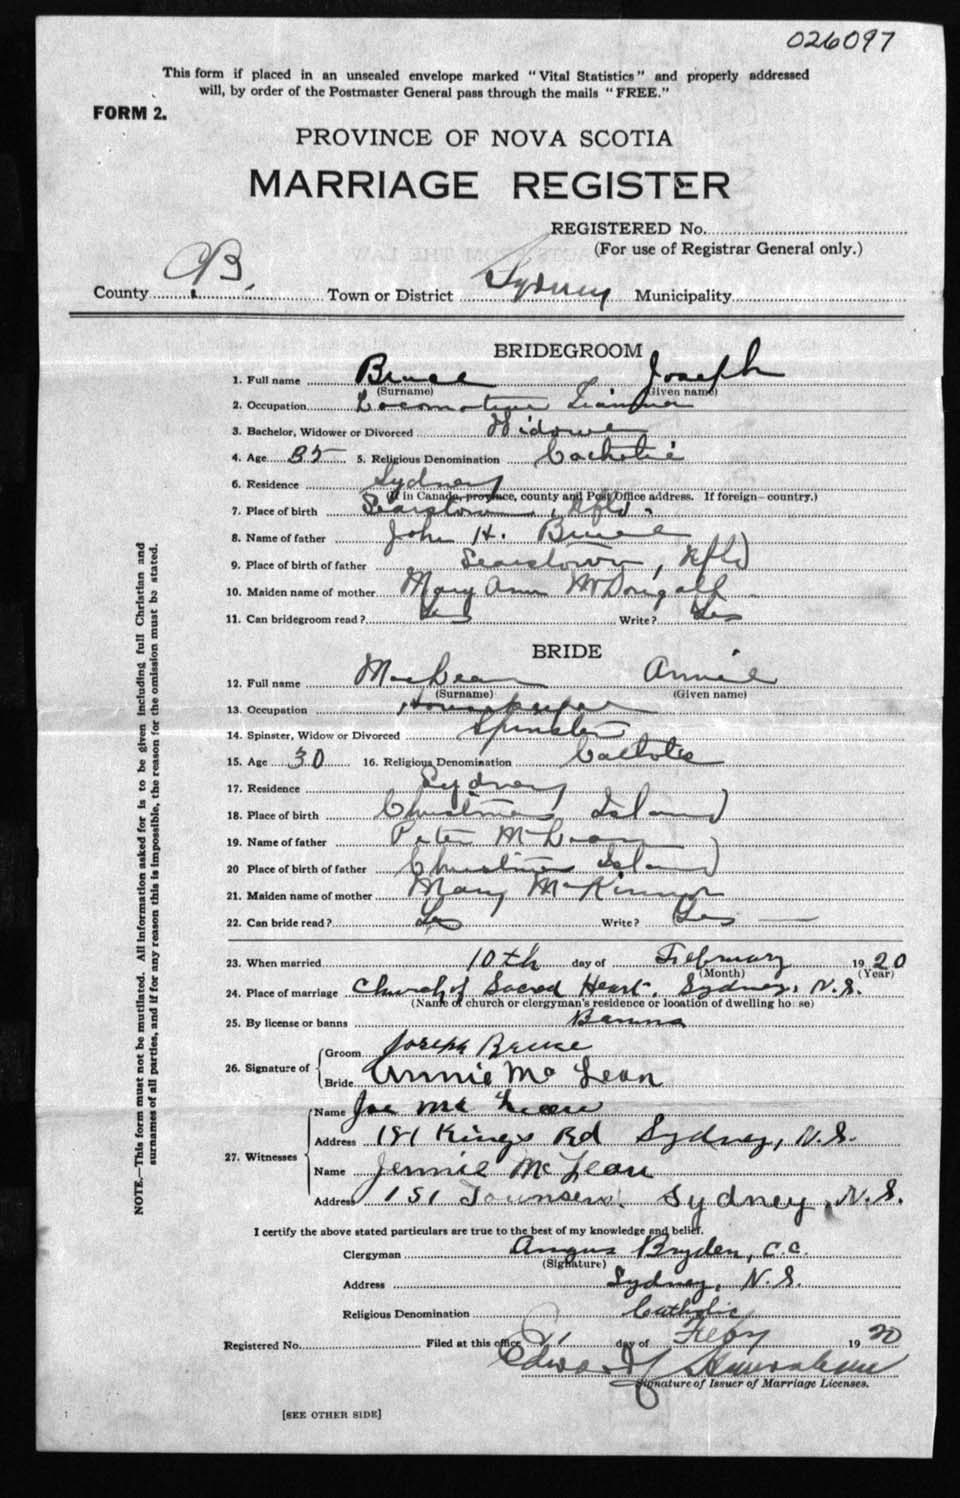 026097
This form if placed in an unsealed envelope marked "Vital Statistics" and properly addressed
will, by order of the Postmaster General pass through the mails "FREE."
FORM 2.
PROVINCE OF NOVA SCOTIA
MARRIAGE REGISTER
REGISTERED No.
(For use of Registrar General only.)
County C.B. Town or District Sydney Municipality
BRIDEGROOM
1. Full name Bruce Joseph
(Surname) (Given name)
2. Occupation Locomotive
3. Bachelor, Widower or Divorced Widower
4. Age 35 5. Religious Denomination Catholic
6. Residence Sydney
(If in Canada, province, county and Post Office address. If foreign—country.)
7. Place of birth Searstown, Nfld.
8. Name of father John H. Bruce
9. Place of birth of father Searstown, Nfld
10. Maiden name of mother Mary Ann McDougall
11. Can bridegroom read? Yes Write? Yes
BRIDE
12. Full name MacLean Annie
(Surname) (Given name)
13. Occupation Housekeeper
14. Spinster, Widow or Divorced Spinster
15. Age 30 16. Religious Denomination Catholic
17. Residence Sydney
18. Place of birth Christmas Island
19. Name of father Peter McLean
20 Place of birth of father Christmas Island
21. Maiden name of mother Mary McKinnon
22. Can bride read? Yes Write? Yes
23. When married 10th day of February 1920
(Month) (Year)
24. Place of marriage Church of Sacred Heart, Sydney, N.S.
(Name of church or clergyman's residence or location of dwelling house)
25. By license or banns Banns
26. Signature of Groom Joseph Bruce
Bride Annie McLean
27. Witnesses Name Joe McLean
Address 181 Kings Rd Sydney, N.S.
Name Jennie McLean
Address 151 Townsend. Sydney, N.S.
I certify the above stated particulars are true to the best of my knowledge and belief.
Clergyman Angus Bryden, C.C.
(Signature)
Address Sydney, N.S.
Religious Denomination Catholic
Registered No. Filed at this office day of Feby 1920
Edward
Signature of Issuer of Marriage Licenses.
[SEE OTHER SIDE]
NOTE.—This form must not be mutilated. All information asked for is to be given including full Christian and
surnames of all parties, and if for any reason this is impossible, the reason for the omission must be stated.